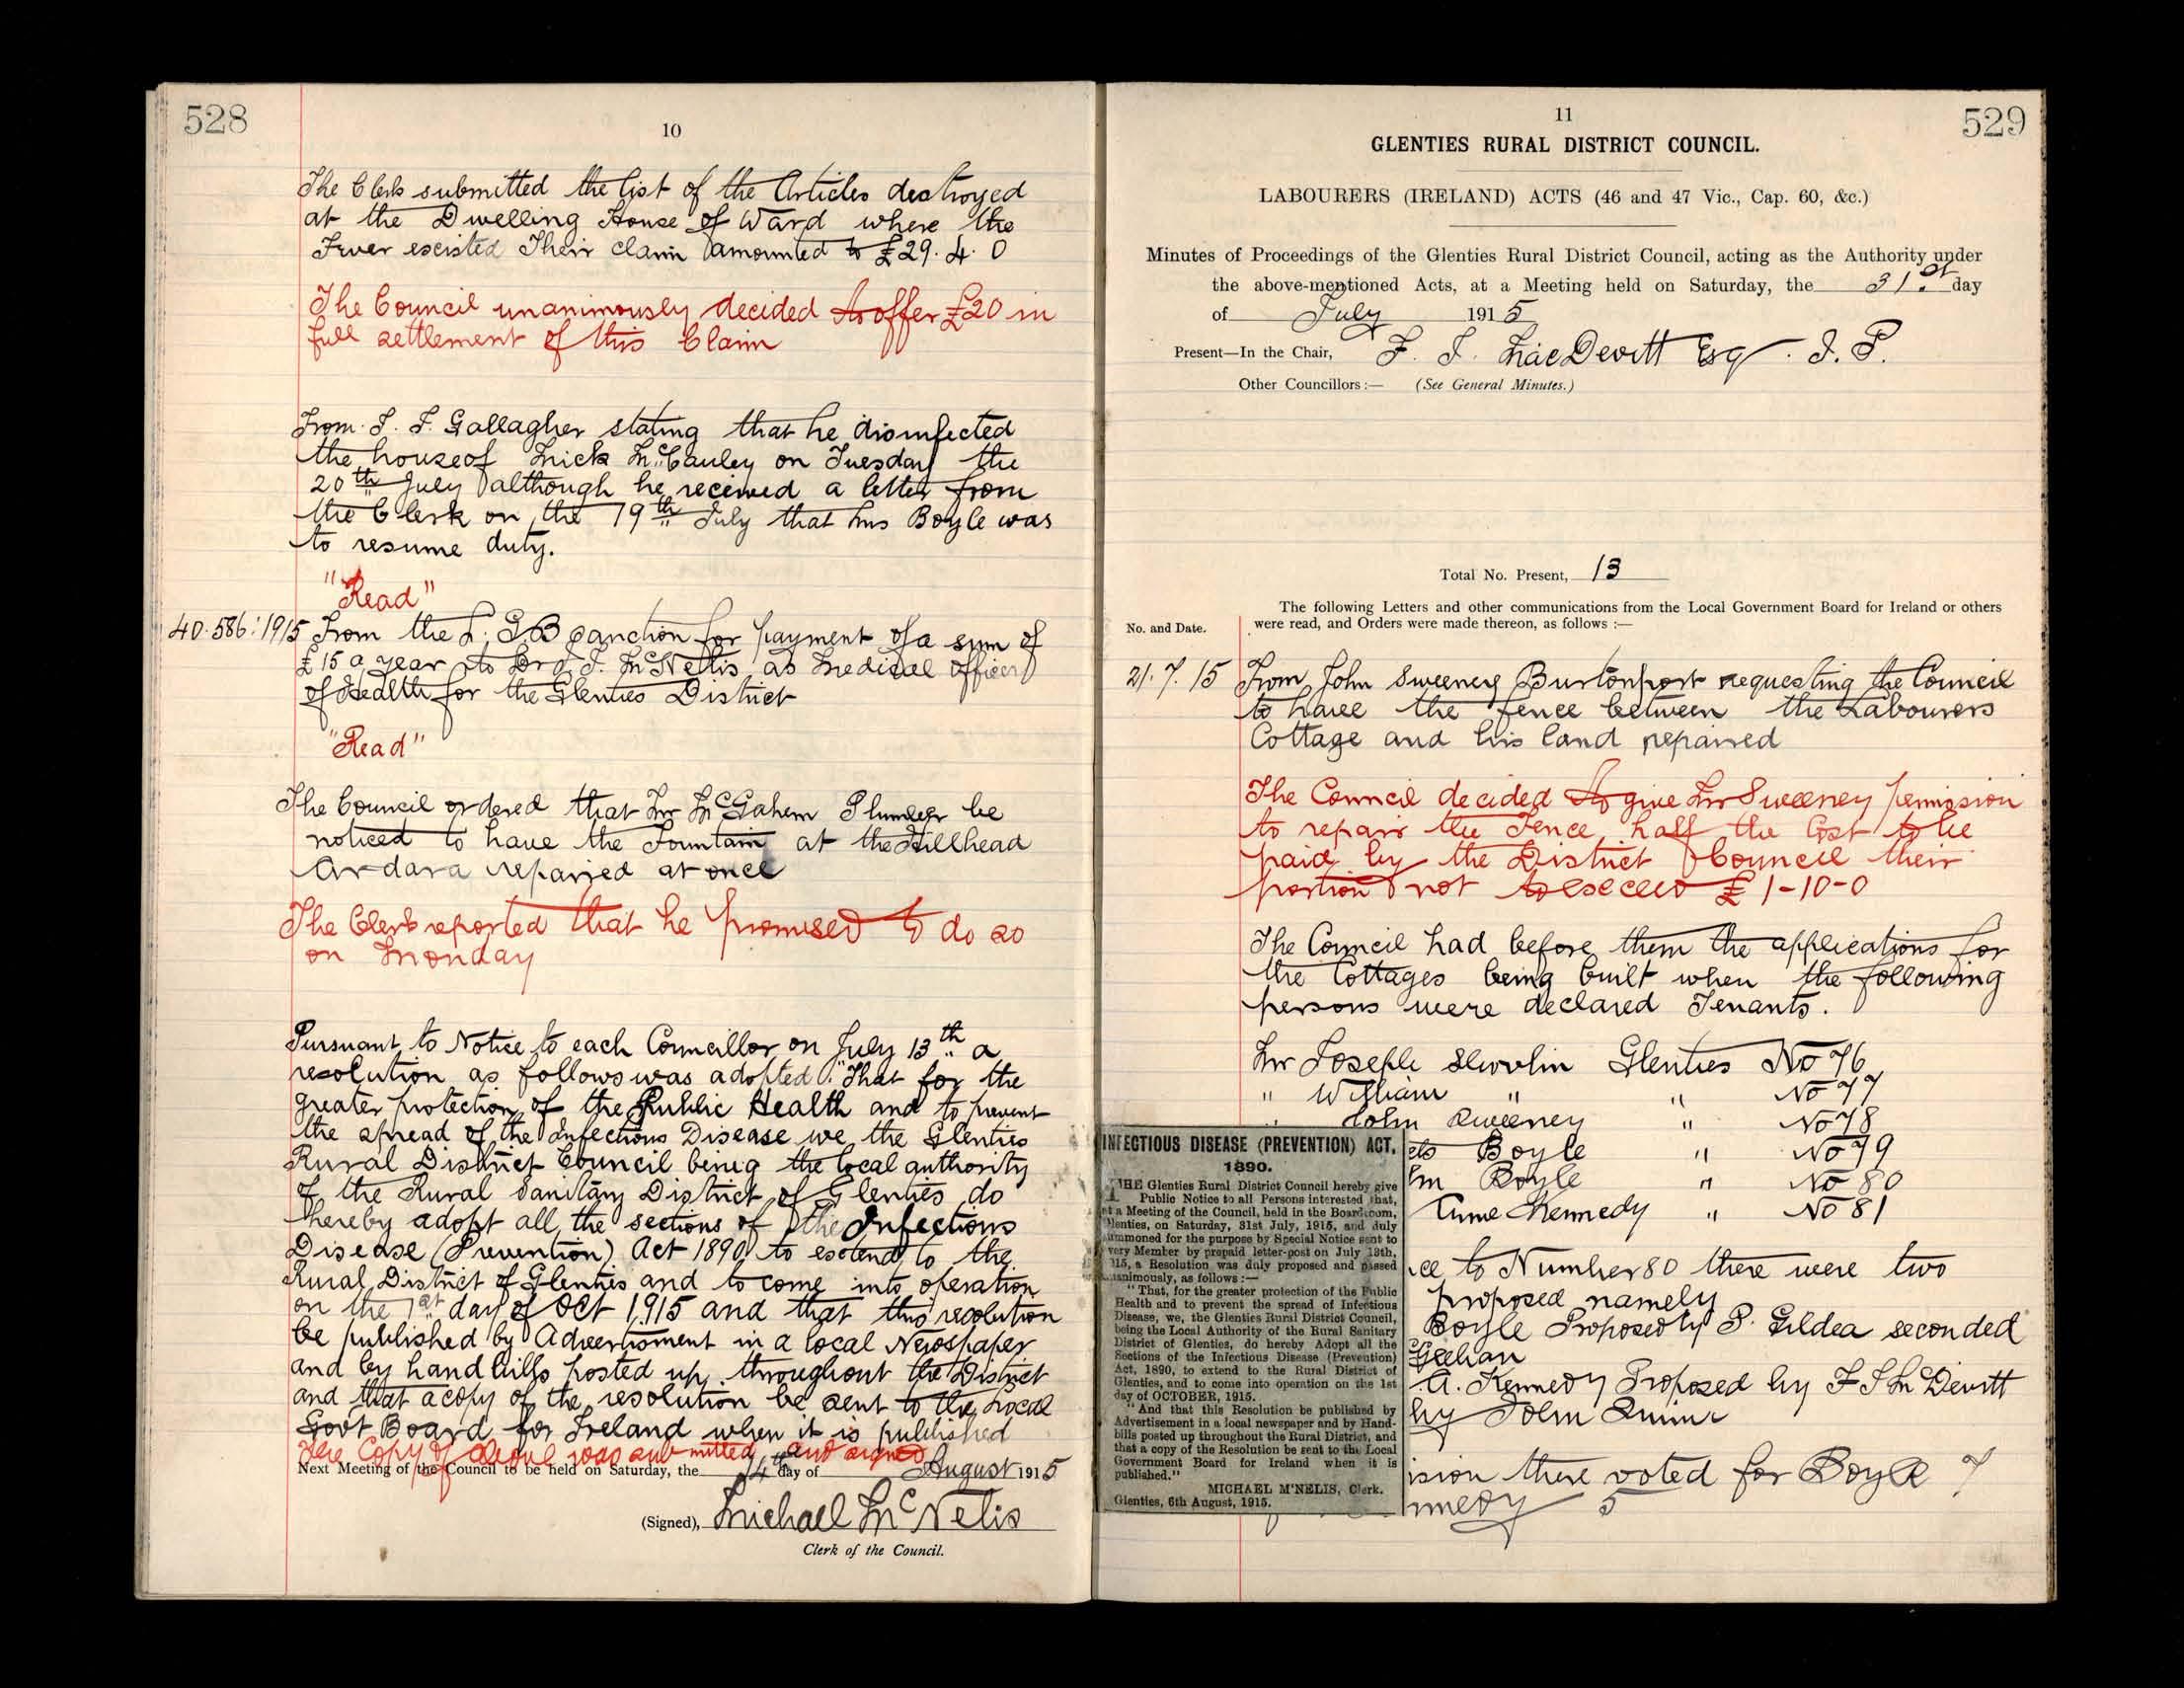 528
10
The Clerk submitted the list of the Articles destroyed
at the Dwelling House of Ward where the
Fever existed Their claim amounted to £29. 4. 0
The Council unanimously decided to offer £20 in
full settlement of this Claim
From J. F. Gallagher stating that he disinfected
the house of Mick McCauley on Tuesday the
20th July although he received a letter from
the Clerk on the 19th July that Mrs Boyle was
to resume duty.
"Read"
40.586:1915 From the L. G. B sanction for payment of a sum of
£15 a year to Dr J. F. McNelis as Medical Officer
of Health for the Glenties District
"Read"
The Council ordered that Mr McGahern Plumber be
noticed to have the Fountain at the Hillhead
Ardara repaired at once
The Clerk reported that he promised to do so
on Monday
Pursuant to Notice to each Councillor on July 13th a
resolution as follows was adopted. "That for the
greater protection of the Public Health and to prevent
the spread of the Infectious Disease we the Glenties
Rural District Council being the local authority
of the Rural Sanitary District of Glenties do
hereby adopt all the sections of the Infectious
Disease (Prevention) Act 1890 to extend to the
Rural District of Glenties and to come into operation
on the 1st day of Oct 1915 and that this resolution
be published by Advertisment in a local Newspaper
and by hand bills posted up throughout the District
and that a copy of the resolution be sent to the Local
Govt Board for Ireland when it is published
Copy of above was submitted and signed
Next Meeting of the Council to be held on Saturday, the 14th day of August 1915
(Signed), Michael McNelis
Clerk of the Council.
529
11
GLENTIES RURAL DISTRICT COUNCIL.
LABOURERS (IRELAND) ACTS (46 and 47 Vic., Cap. 60, &c.)
Minutes of Proceedings of the Glenties Rural District Council, acting as the Authority under
the above-mentioned Acts, at a Meeting held on Saturday, the 31st day
of July 1915
Present—In the Chair, F. J. MacDevitt Esq. J. P.
Other Councillors :— (See General Minutes.)
Total No. Present, 13
The following Letters and other communications from the Local Government Board for Ireland or others
No. and Date. were read, and Orders were made thereon, as follows :—
21. 7. 15 From John Sweeney Burtonport requesting the Council
to have the fence between the Labourers
Cottage and his land repaired
The Council decided to give Mr Sweeney permission
to repair the Fence half the Cost to be
paid by the District Council their
portion not to exceed £1-10-0
The Council had before them the applications for
the Cottages being built when the following
persons were declared Tenants.
Mr Joseph Glenties No 76
" William " " No 77
" John Sweeney " No 78
Boyle " No 79
Boyle " No 80
Kennedy " No 81
to Number 80 there were two
proposed namely
Boyle Proposed by P. Gildea seconded
A. Kennedy Proposed by F J McDevitt
by John Quinn
there voted for Boyle 7
5
INFECTIOUS DISEASE (PREVENTION) ACT,
1890.
THE Glenties Rural District Council hereby give
Public Notice to all Persons interested that,
at a Meeting of the Council, held in the Boardroom,
Glenties, on Saturday, 31st July, 1915, and duly
summoned for the purpose by Special Notice sent to
every Member by prepaid letter-post on July 13th,
1915, a Resolution was duly proposed and passed
unanimously, as follows :—
"That, for the greater protection of the Public
Health and to prevent the spread of Infectious
Disease, we, the Glenties Rural District Council,
being the Local Authority of the Rural Sanitary
District of Glenties, do hereby Adopt all the
Sections of the Infectious Disease (Prevention)
Act, 1890, to extend to the Rural District of
Glenties, and to come into operation on the 1st
day of OCTOBER, 1915.
"And that this Resolution be published by
Advertisement in a local newspaper and by Hand-
bills posted up throughout the Rural District, and
that a copy of the Resolution be sent to the Local
Government Board for Ireland when it is
published."
MICHAEL M'NELIS, Clerk.
Glenties, 6th August, 1915.